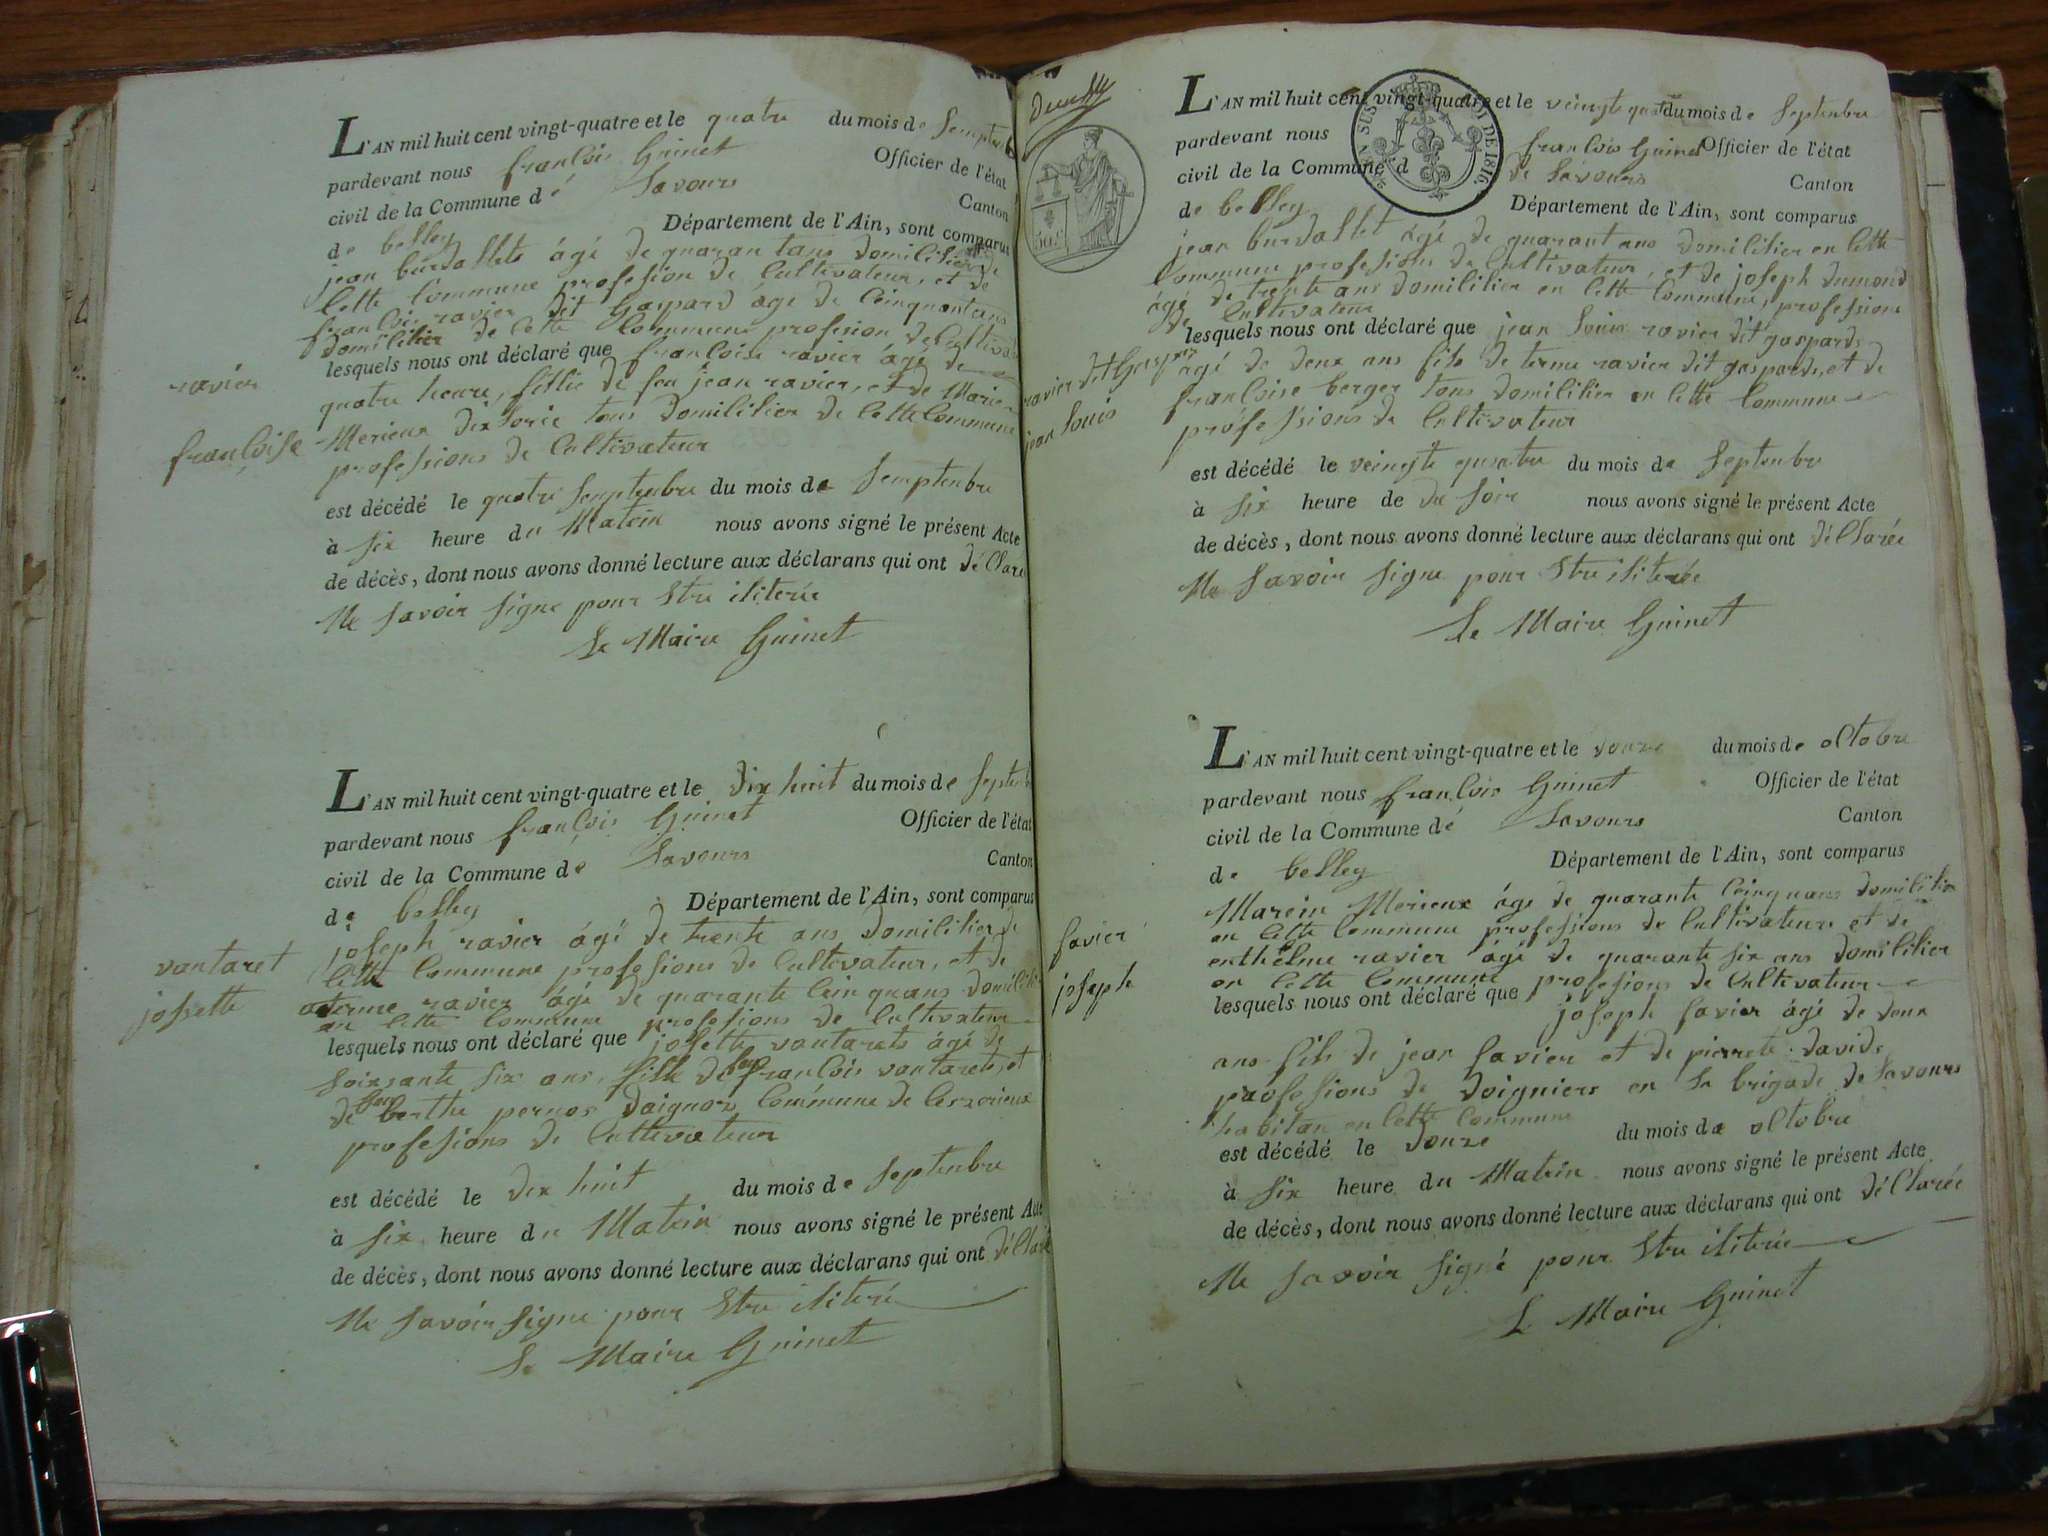 L'AN mil huit cent vingt-quatre et le quatre du mois de Semptenb
pardevant nous francois Guinet Officier de l'état
civil de la Commune dé Savours Canton
de belley Département de l'Ain, sont comparus
jean burdallets ágé de quaran tans domilisier de
Cette Commune profession de Cultivateur, et de
francois ravier dit Gaspard ágé de Cinquantans
domilisier de Cette Commune profession de Cultivat
lesquels nous ont déclaré que francoise ravier ágé de
quatre heure, fillie de feu jean ravier, et de Marie
Merieux tous domilisier de Cette Commune
professions de Cultivateur
est décédé le quatre Semptenbre du mois de Semptenbre
à six heure du Matein nous avons signé le présent Acte
de décès, dont nous avons donné lecture aux déclarans qui ont déClaré
Ne Savoir signe pour Etre iliterée
Le Maire Guinet
ravier
françoise
L'AN mil huit cent vingt-quatre et le dix huit du mois de Septenb
pardevant nous francois Guinet Officier de l'état
civil de la Commune dé Savours Canton
de belley Département de l'Ain, sont comparus
joseph ravier ágé de trente ans domilisier de
Cette Commune professions de Cultivateur, et de
aterme ravier ágé de quarante Cein quans domilisi
en Cette Commune professions de Cultivateur
lesquels nous ont déclaré que josette vantarets ágé de
soixsante six ans, fille de feu francois vantarets, et
de feu berthe pernos daignoz Commune de Cerzerieux
professions de Cultivateur
est décédé le dix huit du mois de Septenbre
à six heure du Matein nous avons signé le présent Acte
de décès, dont nous avons donné lecture aux déclarans qui ont déClaré
Ne Savoir signe pour Etre iliteré
Le Maire Guinet
vantaret
josette
50 c
L'AN mil huit cent vingt-quatre et le veingte quatre du mois de Septenbre
pardevant nous francois Guinet Officier de l'état
civil de la Commune d de Savours Canton
de belley Département de l'Ain, sont comparus
jean burdallet ágé de quarant ans domilisier en Cette
Commune professions de Cultivateur, et de joseph dumond
ágé de trente ans domilisier en Cette Commune, professions
de Cultivateur
lesquels nous ont déclaré que jean Louis ravier dit gaspards
ágé de deux ans fils de terme ravier dit gaspards, et de
francoise berger tous domilisier en Cette Commune
professions de Cultivateur
est décédé le veingte quatre du mois de Septenbre
à six heure de du soir nous avons signé le présent Acte
de décès, dont nous avons donné lecture aux déclarans qui ont déClarée
Ne Savoir signe pour Etre iliterée
Le Maire Guinet
ravier dit Gaspar
jean Louis
L'AN mil huit cent vingt-quatre et le douze du mois de oCtobre
pardevant nous francois Guinet Officier de l'état
civil de la Commune dé Savours Canton
de belley Département de l'Ain, sont comparus
Marein Merieux ágé de quarante Cinquans domilisier
en Cette Commune professions de Cultivateur et de
enthelme ravier ágé de quarante six ans domilisier
en Cette Commune professions de Cultivateur
lesquels nous ont déclaré que joseph Savier ágé de deux
ans fils de jean Savier et de pierrete davide
professions de doigniers en La brigade de Savours
habitan en Cette Commune
est décédé le douze du mois de oCtobre
à six heure du Matein nous avons signé le présent Acte
de décès, dont nous avons donné lecture aux déclarans qui ont déClarée
Ne Savoir signé pour Etre iliterée
Le Maire Guinet
Savier
joseph